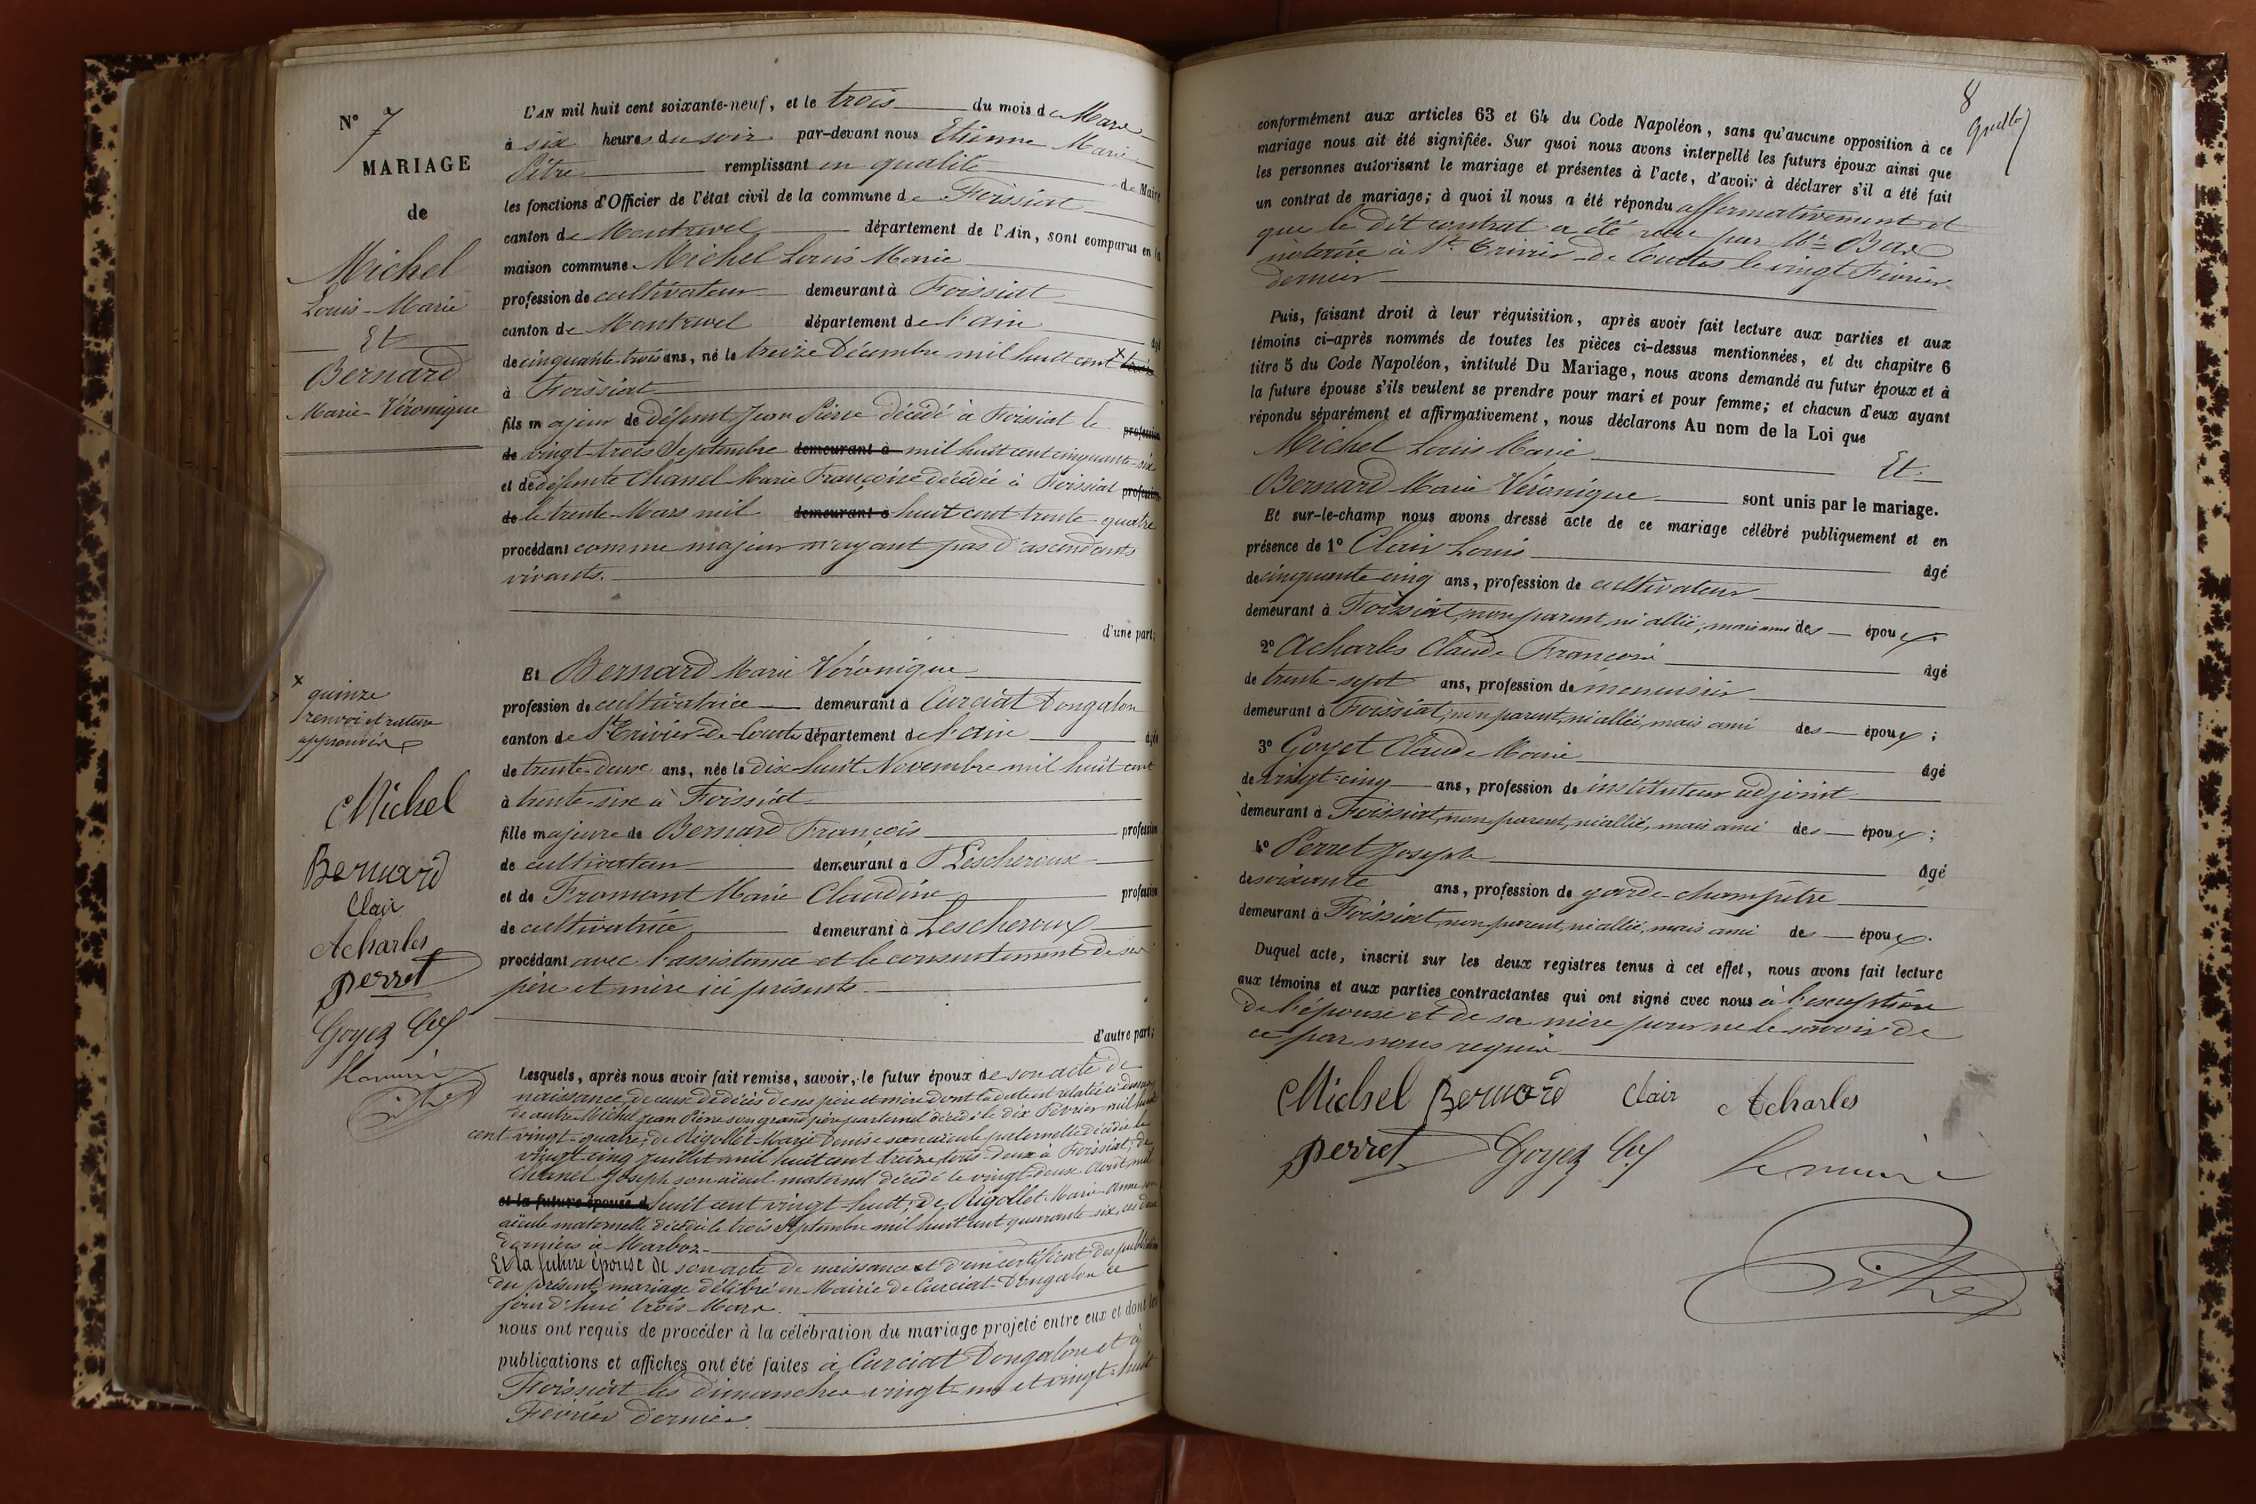 N° 7
MARIAGE
de
Michel
Louis-Marie
Et
Bernard
Marie-Véronique
x quinze
renvoi et rature
approuvés
Michel
Bernard
Clair
Acharles
Perret
Goyez
Le maire
Pitre
L'AN mil huit cent soixante-neuf, et le trois du mois de Mars
à six heures du soir par-devant nous Etienne Marie
Pitre remplissant en qualité de Maire
les fonctions d'Officier de l'état civil de la commune de Foissiat
canton de Montrevel département de l'Ain, sont comparus en la
maison commune Michel Louis Marie
profession de cultivateur demeurant à Foissiat
canton de Montrevel département de l'ain âgé
de cinquante-trois ans, né le treize Décembre mil huit cent x
à Foissiat
fils majeur de défunt Jean Pierre décédé à Foissiat le profession
de vingt-trois Septembre demeurant à mil huit cent cinquante-six
et de défunte Chanel Marie Françoise décédée à Foissiat profession
de le trente Mars mil demeurant à huit cent trente-quatre
procédant comme majeur n'ayant pas d'ascendants
vivants.
d'une part;
Et Bernard Marie Véronique
profession de cultivatrice demeurant à Curciat Dongalon
canton de St Trivier-de-Courtes département de l'ain âgée
de trente-deux ans, née le dix-huit Novembre mil huit cent
à trente-six à Foissiat
fille majeure de Bernard François profession
de cultivateur demeurant à Lescheroux
et de Fromont Marie Claudine profession
de cultivatrice demeurant à Lescheroux
procédant avec l'assistance et le consentement de ses
père et mère ici présents
d'autre part;
Lesquels, après nous avoir fait remise, savoir, le futur époux de son acte de
naissance, de ceux de décès de ses père et mère dont la date est relatée ci-dessus,
de autre Michel Jean Pierre son grand père paternel décédé le dix Février mil huit
cent vingt-quatre, de Rigollet Marie Denise son aïeule paternelle décédée le
vingt-cinq juillet mil huit cent treize, tous deux à Foissiat, de
Chanel Joseph son aïeul maternel décédé le vingt-deux Août mil
et la future épouse d huit cent vingt-huit; de Rigollet Marie Anne son
aïeule maternelle décédée le trois Septembre mil huit cent quarante-six, ces deux
derniers à Marboz.
Et la future épouse de son acte de naissance et d'un certificat des publications
du présent mariage délivré en Mairie de Curciat-Dongalon ce
jourd'hui trois Mars.
nous ont requis de procéder à la célébration du mariage projeté entre eux et dont les
publications et affiches ont été faites à Curciat Dongalon et à
Foissiat les dimanches vingt-un et vingt-huit
Février dernier.
8
conformément aux articles 63 et 64 du Code Napoléon, sans qu'aucune opposition à ce
mariage nous ait été signifiée. Sur quoi nous avons interpellé les futurs époux ainsi que
les personnes autorisant le mariage et présentes à l'acte, d'avoir à déclarer s'il a été fait
un contrat de mariage; à quoi il nous a été répondu affirmativement et
que le dit contrat a été reçu par Me
notaire à St Trivier-de-Courtes le vingt Février
dernier
Puis, faisant droit à leur réquisition, après avoir fait lecture aux parties et aux
témoins ci-après nommés de toutes les pièces ci-dessus mentionnées, et du chapitre 6
titre 5 du Code Napoléon, intitulé Du Mariage, nous avons demandé au futur époux et à
la future épouse s'ils veulent se prendre pour mari et pour femme; et chacun d'eux ayant
répondu séparément et affirmativement, nous déclarons Au nom de la Loi que
Michel Louis Marie Et
Bernard Marie Véronique sont unis par le mariage.
Et sur-le-champ nous avons dressé acte de ce mariage célébré publiquement et en
présence de 1° Clair Louis âgé
de cinquante cinq ans, profession de cultivateur
demeurant à Foissiat, non parent, ni allié, mais ami des époux.
2° Acharles Claude François âgé
de trente-sept ans, profession de menuisier
demeurant à Foissiat, non parent, ni allié, mais ami des époux;
3° Goyet Claude Marie âgé
de vingt-cinq ans, profession de instituteur adjoint
demeurant à Foissiat, non parent, ni allié, mais ami des époux;
4° Perret Joseph âgé
de soixante ans, profession de garde-champêtre
demeurant à Foissiat, non parent, ni allié, mais ami des époux.
Duquel acte, inscrit sur les deux registres tenus à cet effet, nous avons fait lecture
aux témoins et aux parties contractantes qui ont signé avec nous à l'exception
de l'épouse et de sa mère pour ne le savoir de
ce par nous requis
Michel Bernard Clair Acharles
Perret Goyez Le maire
Pitre